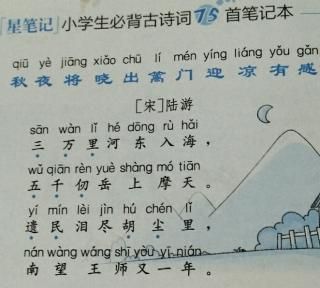 「星笔记」小学生必背古诗词75首笔记本
qiū yè jiāng xiǎo chū lí mén yíng liáng yǒu gǎn
秋夜将晓出篱门迎凉有感
[宋]陆游
sān wàn lǐ hé dōng rù hǎi
三万里河东入海，
wǔ qiān rèn yuè shàng mó tiān
五千仞岳上摩天。
yí mín lèi jìn hú chén lǐ
遗民泪尽胡尘里，
nán wàng wáng shī yòu yì nián
南望王师又一年。